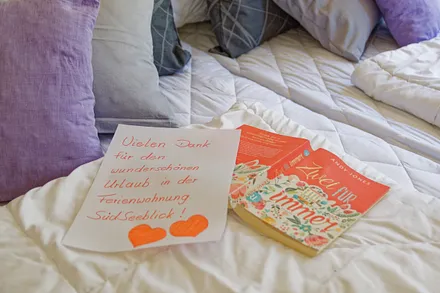 Vielen Dank
für den
wunderschönen
Urlaub in der
Ferienwohnung
SüdSeeblick!
ANDY JONES
Zwei FÜR
immer